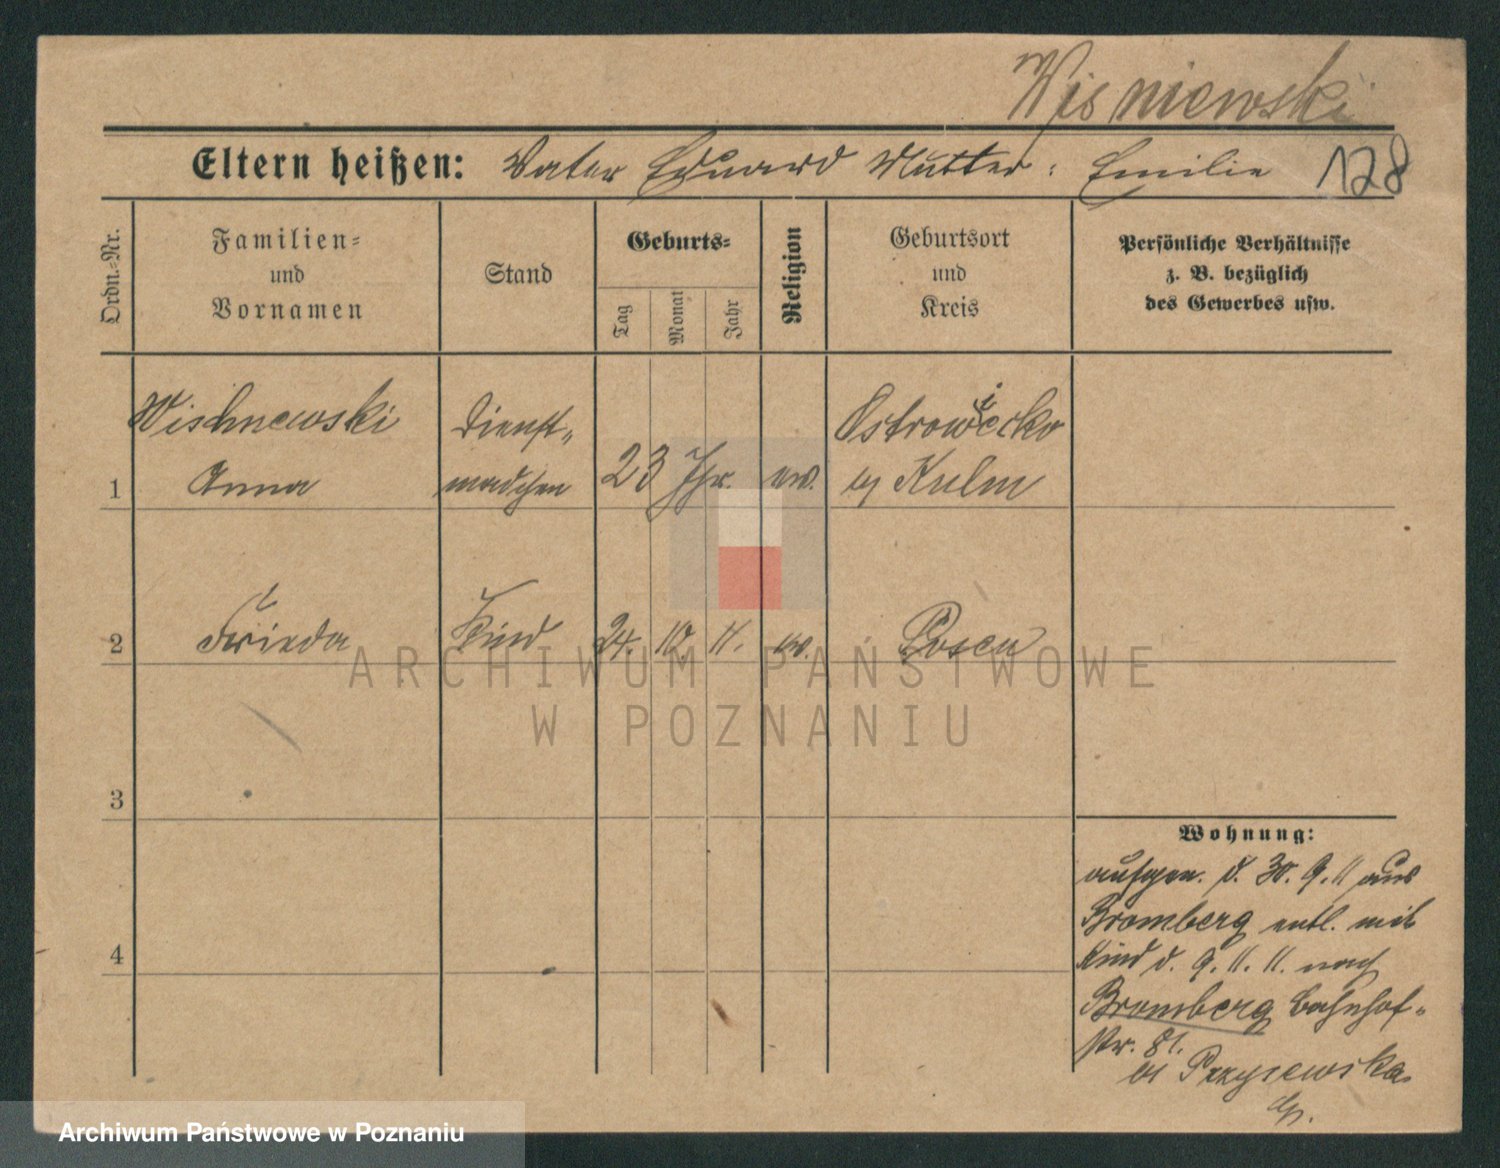 Wisniewski
Eltern heißen: Vater Eduard Mutter: Emilie 128
Ordn.-Nr.
Familien-
und
Vornamen
Stand
Geburts-
Tag
Monat
Jahr
Religion
Geburtsort
und
Kreis
Persönliche Verhältnisse
z. B. bezüglich
des Gewerbes usw.
Wischnewski Dienst- Ostrowiecko
1 Anna mädchen 23 Jhr. ev. Kulm
2 Frieda Kind 24. 10. 11. ev. Posen
3
4
Wohnung:
aufgen. d. 30. 9. 11 aus
Bromberg entl. mit
Kind d. 9. 11. 11. nach
Bromberg Bahnhof-
str. 81.
bei
ARCHIWUM PAŃSTWOWE
W POZNANIU
Archiwum Państwowe w Poznaniu